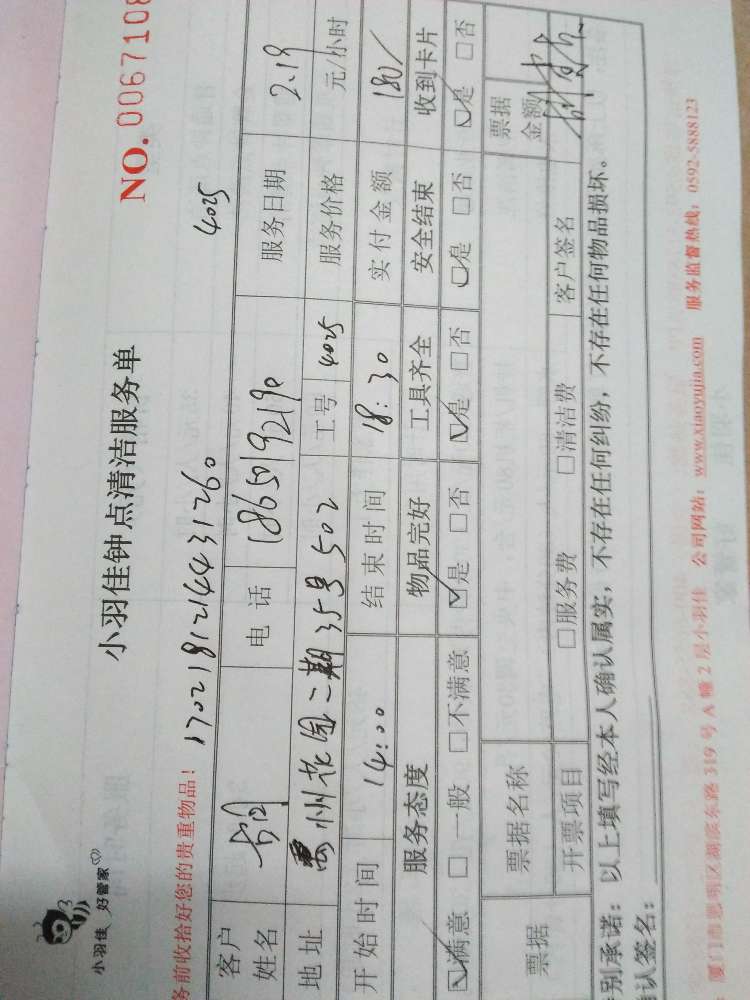 小羽佳 好管家
小羽佳钟点清洁服务单
NO. 0067108
务前收拾好您的贵重物品！ 1702181214431260 4025
客户姓名 电话 18650192190 服务日期 2.19
地址 禹州花园二期35号502 工号 4025 服务价格 元/小时
开始时间 14:00 结束时间 18:30 实付金额 180/
服务态度 物品完好 工具齐全 安全结束 收到卡片
☑满意 □一般 □不满意 ☑是 □否 ☑是 □否 □是 □否 ☑是 □否
票据 票据名称 票据金额
开票项目 □服务费 □清洁费 客户签名
别承诺：以上填写经本人确认属实，不存在任何纠纷，不存在任何物品损坏。
认签名：
厦门市思明区湖滨东路 319 号 A 幢 2 层小羽佳 公司网站：www.xiaoyujia.com 服务监督热线：0592-5888123